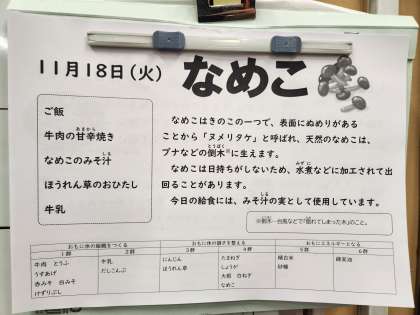 11月18日（火）
なめこ
ご飯
牛肉の甘辛焼き
なめこのみそ汁
ほうれん草のおひたし
牛乳
なめこはきのこの一つで、表面にぬめりがある
ことから「ヌメリタケ」と呼ばれ、天然のなめこは、
ブナなどの倒木※に生えます。
なめこは日持ちがしないため、水煮などに加工されて出
回ることがあります。
今日の給食には、みそ汁の実として使用しています。
※倒木…台風などで倒れてしまった木のこと。
おもに体の組織をつくる
おもに体の調子を整える
おもにエネルギーとなる
1群 2群 3群 4群 5群 6群
牛肉 とうふ 牛乳 にんじん たまねぎ 精白米
うすあげ だしこんぶ ほうれん草 しょうが 砂糖
赤みそ 白みそ 大根 白ねぎ
けずりぶし なめこ